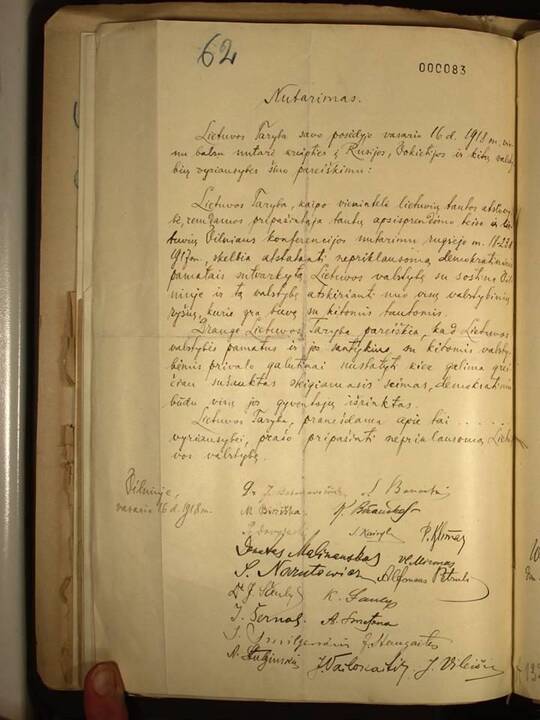 62
000083
Nutarimas.
Lietuvos Taryba savo posėdyje vasario 16 d. 1918 m. vie-
nu balsu nutarė kreipties į Rusijos, Vokietijos ir kitų valsty-
bių vyriausybes šiuo pareiškimu:
Lietuvos Taryba, kaipo vienintelė lietuvių tautos atstovy-
bė, remdamos pripažintąja tautų apsisprendimo teise ir lie-
tuvių Vilniaus konferencijos nutarimu rugsėjo m. 18-23 d.
1917 m., skelbia atstatanti nepriklausomą, demokratiniais
pamatais sutvarkytą Lietuvos valstybę su sostine Vil-
niuje ir tą valstybę atskirianti nuo visų valstybinių
ryšių, kurie yra buvę su kitomis tautomis.
Drauge Lietuvos Taryba pareiškia, kad Lietuvos
valstybės pamatus ir jos santykius su kitomis valsty-
bėmis privalo galutinai nustatyti kiek galima grei-
čiau sušauktas steigiamasis seimas, demokratiniu
būdu visų jos gyventojų išrinktas.
Lietuvos Taryba, pranešdama apie tai . . . . .
vyriausybei, prašo pripažinti nepriklausomą Lietu-
vos valstybę.
Vilniuje,
vasario 16 d. 1918 m.
Dr. J. Basanavičius S. Banaitis
M. Biržiška K. Bizauskas
P. Dovydaitis S. Kairys P. Klimas
Donatas Malinauskas Vl. Mironas
S. Narutowicz Alfonsas Petrulis
Dr J. Šaulys K. Šaulys
J. Šernas A. Smetona
J. Smilgevičius J. Staugaitis
A. Stulginskis J. Vailokaitis J. Vileišis